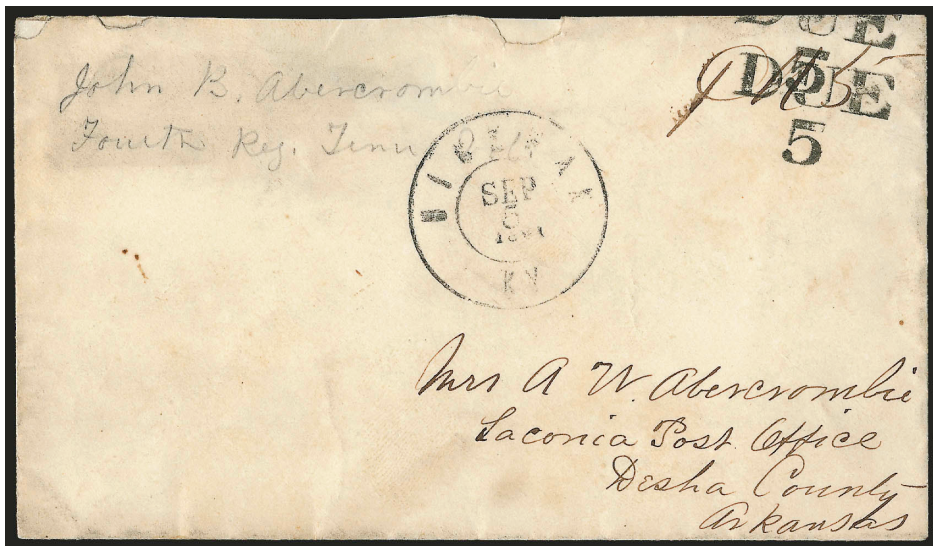 John B. Abercrombie
Fourth Reg. Tenn
DUE
DUE
5
SEP
5
KY
Mrs A W. Abercrombie
Laconia Post Office
Desha County
Arkansas